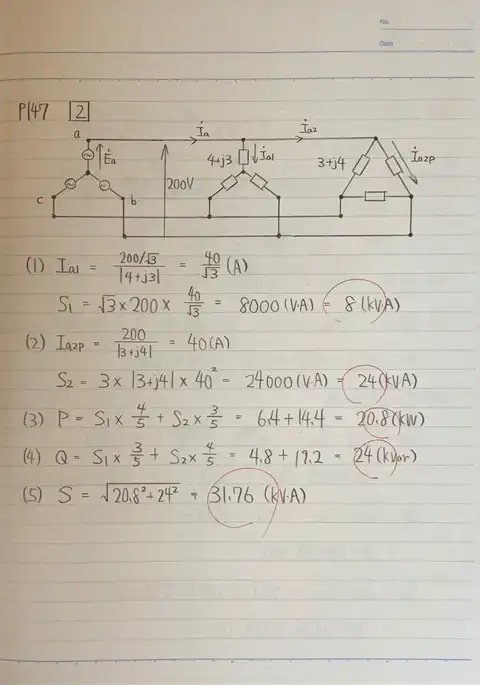 No.
Date
P147 [2]
a İa İa2
Ėa 4+j3 İa1 3+j4 İa2p
200V
c b
(1) Ia1 = 200/√3 / |4+j3| = 40/√3 (A)
S1 = √3 × 200 × 40/√3 = 8000 (V·A) = 8 (kV·A)
(2) Ia2p = 200 / |3+j4| = 40 (A)
S2 = 3 × |3+j4| × 40² = 24000 (V·A) = 24 (kV·A)
(3) P = S1 × 4/5 + S2 × 3/5 = 6.4 + 14.4 = 20.8 (kW)
(4) Q = S1 × 3/5 + S2 × 4/5 = 4.8 + 19.2 = 24 (kvar)
(5) S = √20.8² + 24² = 31.76 (kV·A)